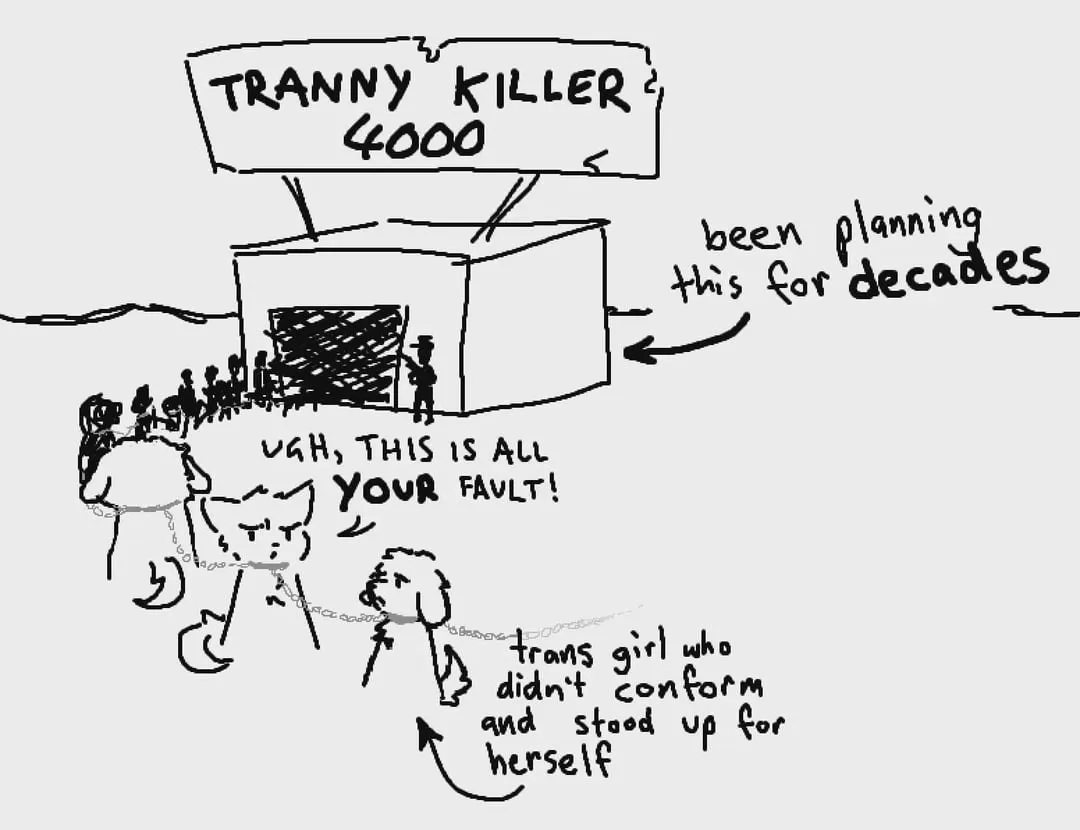 TRANNY KILLER
4000
been planning
this for decades
UGH, THIS IS ALL
YOUR FAULT!
trans girl who
didn't conform
and stood up for
herself